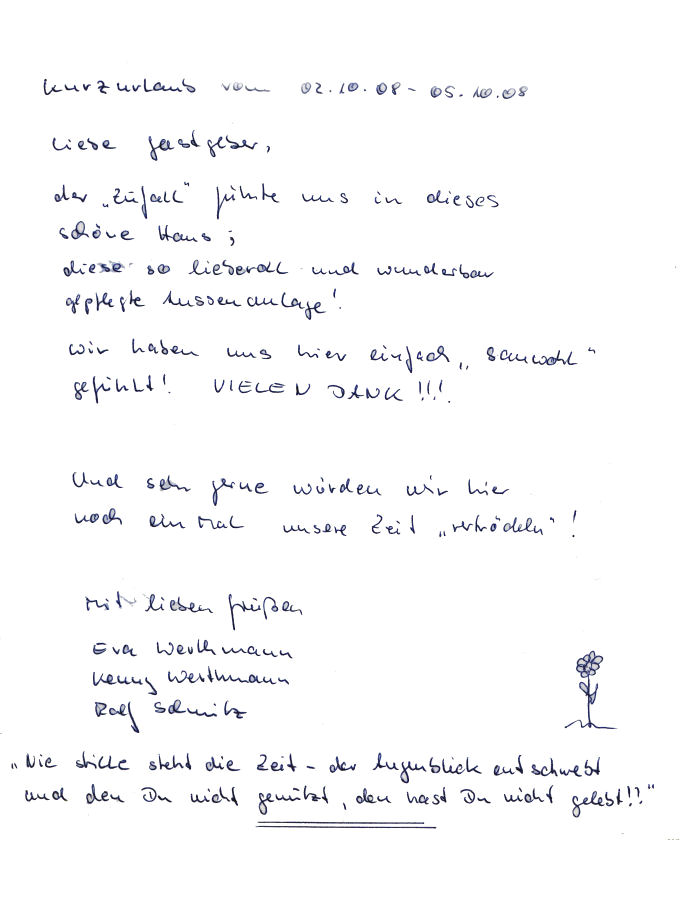 Kurzurlaub vom 02.10.08 - 05.10.08
Liebe Gastgeber,
der „Zufall“ führte uns in dieses
schöne Haus;
diese so liebevoll und wunderbar
gepflegte Aussenanlage!
wir haben uns hier einfach „sauwohl“
gefühlt! VIELEN DANK!!!
Und sehr gerne würden wir hier
noch ein Mal unsere Zeit „vertrödeln“!
Mit lieben Grüßen
Eva Werthmann
Kenny Werthmann
Ralf Schmitz
„Nie stille steht die Zeit - der Augenblick entschwebt
und den Du nicht genützt, den hast Du nicht gelebt!!“